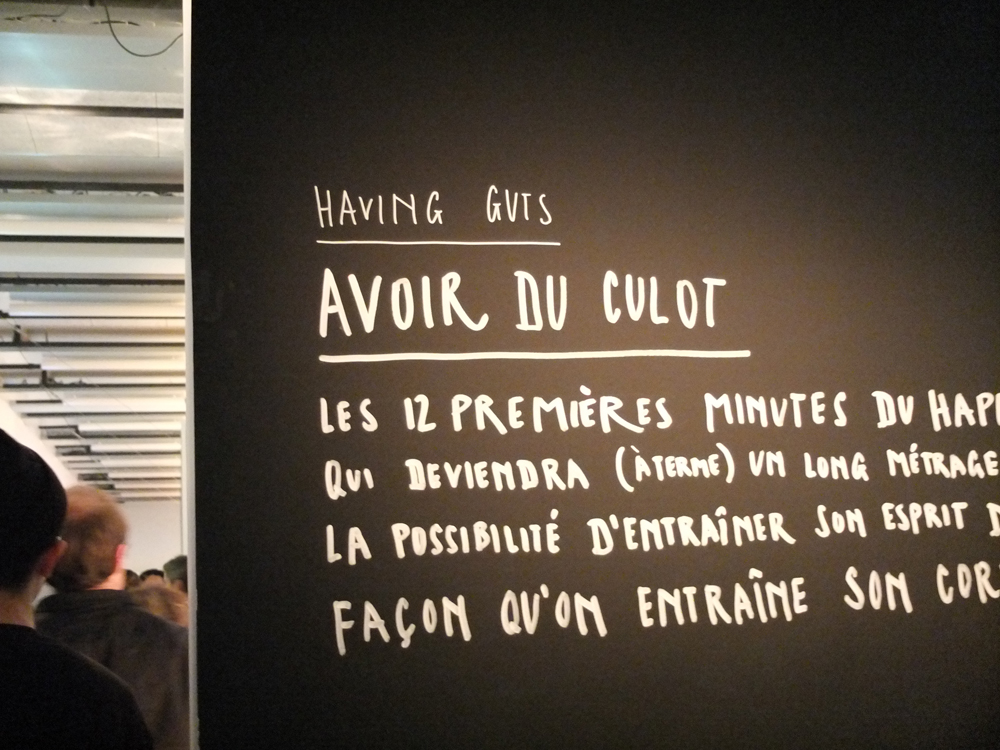 HAVING GUTS
AVOIR DU CULOT
LES 12 PREMIÈRES MINUTES DU
QUI DEVIENDRA (À TERME) UN LONG MÉTRAGE
LA POSSIBILITÉ D'ENTRAÎNER SON ESPRIT
FAÇON QU'ON ENTRAÎNE SON